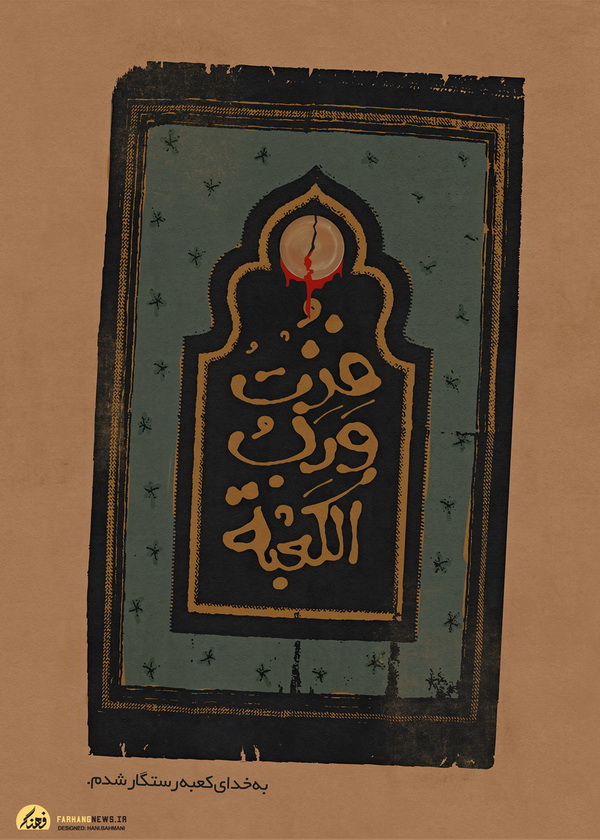 فُزْتُ
وَرَبُّ
الْکَعْبَة
به خدای کعبه رستگار شدم.
فرهنگ
FARHANGNEWS.IR
DESIGNED: HANI.BAHMANI